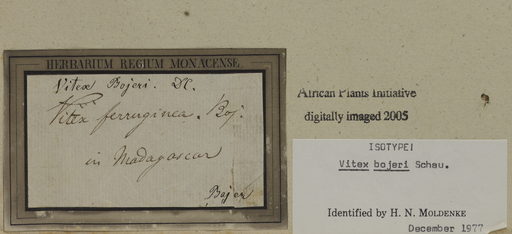 HERBARIUM REGIUM MONACENSE.
Vitex Bojeri. DC.
Vitex ferruginea. Boj.
in Madagascar
Bojer
African Plants Initiative
digitally imaged 2005
ISOTYPE!
Vitex bojeri Schau.
Identified by H. N. MOLDENKE
December 1977